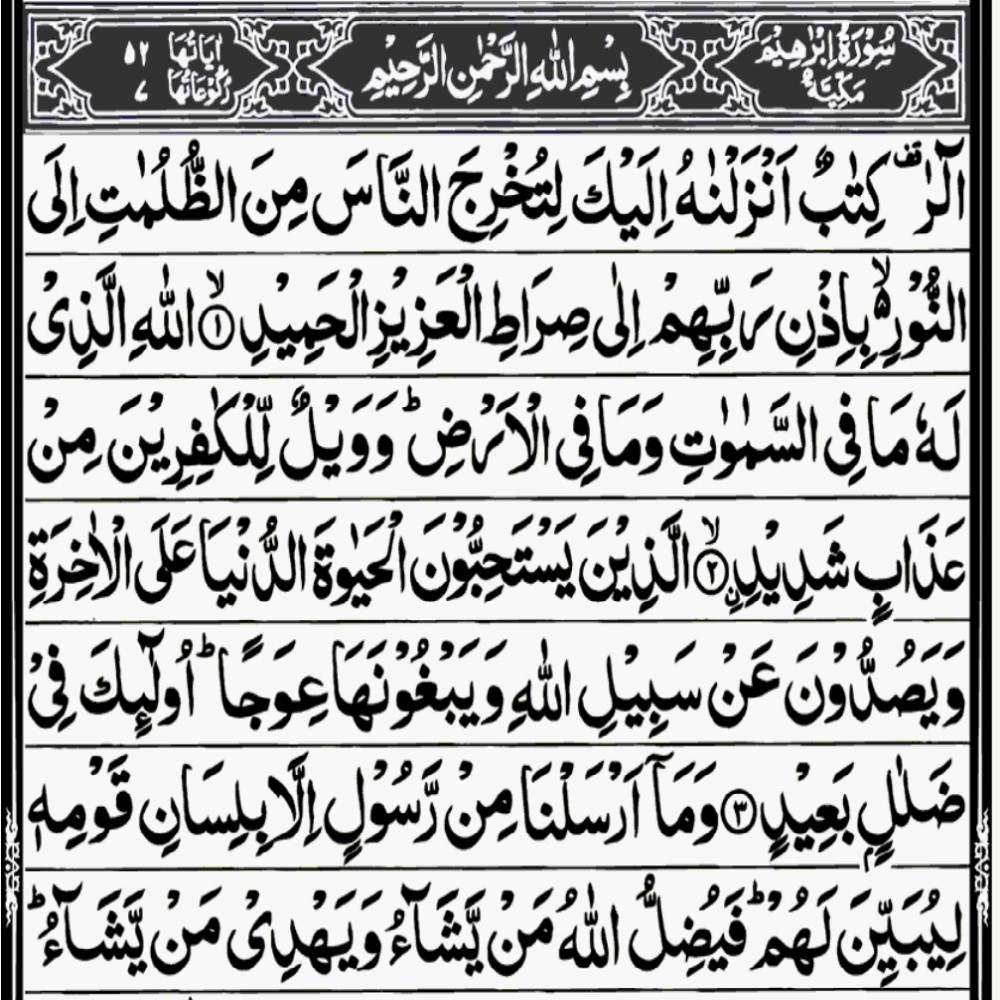 سُوْرَةُ اِبْرٰهِيْمَ مَكِّيَّةٌ بِسْمِ اللّٰهِ الرَّحْمٰنِ الرَّحِيْمِ اٰيَاتُهَا ٥٢ رُكُوْعَاتُهَا ٧
الٓرٰ ۫ كِتٰبٌ اَنْزَلْنٰهُ اِلَيْكَ لِتُخْرِجَ النَّاسَ مِنَ الظُّلُمٰتِ اِلَى
النُّوْرِ ۙ۬ بِاِذْنِ رَبِّهِمْ اِلٰى صِرَاطِ الْعَزِيْزِ الْحَمِيْدِ ۙ﴿١﴾ اللّٰهِ الَّذِىْ
لَهٗ مَا فِى السَّمٰوٰتِ وَمَا فِى الْاَرْضِ ؕ وَوَيْلٌ لِّلْكٰفِرِيْنَ مِنْ
عَذَابٍ شَدِيْدِ ۙ﴿٢﴾ ۨالَّذِيْنَ يَسْتَحِبُّوْنَ الْحَيٰوةَ الدُّنْيَا عَلَى الْاٰخِرَةِ
وَيَصُدُّوْنَ عَنْ سَبِيْلِ اللّٰهِ وَيَبْغُوْنَهَا عِوَجًا ؕ اُولٰٓئِكَ فِىْ
ضَلٰلٍۭ بَعِيْدٍ ﴿٣﴾ وَمَاۤ اَرْسَلْنَا مِنْ رَّسُوْلٍ اِلَّا بِلِسَانِ قَوْمِهٖ
لِيُبَيِّنَ لَهُمْ ؕ فَيُضِلُّ اللّٰهُ مَنْ يَّشَآءُ وَيَهْدِىْ مَنْ يَّشَآءُ ؕ